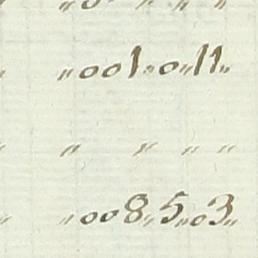 " 0 " " "
" 001 " 0 " 11 "
" " " " "
" 008 " 5 " 03 "